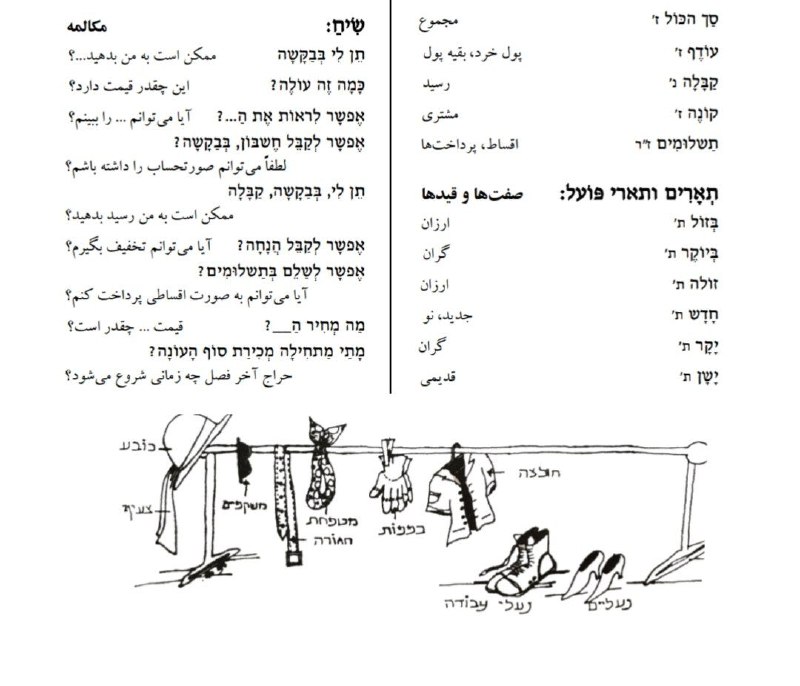 סַךְ הכּוֹל ז׳ مجموع
עוֹדֶף ז׳ پول خرد، بقیه پول
קַבָּלָה נ׳ رسید
קוֹנֶה ז׳ مشتری
תַשלוּמִים ז״ר اقساط، پرداخت‌ها
תְאָרִים ותארי פּוֹעל: صفت‌ها و قیدها
בְּזוֹל ת׳ ارزان
בְּיוֹקֶר ת׳ گران
זוֹלה ת׳ ارزان
חָדָש ת׳ جدید، نو
יָקָר ת׳ گران
יָשָן ת׳ قدیمی
שִׂיחַ: مکالمه
תֵן לִי בְּבַקָּשָה ممکن است به من بدهید...؟
כַּמָה זֶה עוֹלֶה? این چقدر قیمت دارد؟
אֶפשָר לִראוֹת אֶת הַ...? آیا می‌توانم ... را ببینم؟
אֶפשָר לְקַבֵּל חֶשבּוֹן, בְּבַקָשָה?
لطفاً می‌توانم صورتحساب را داشته باشم؟
תֵן לִי, בְּבַקָשָה, קַבָּלָה
ممکن است به من رسید بدهید؟
אֶפשָר לְקַבֵּל הֲנָחָה? آیا می‌توانم تخفیف بگیرم؟
אֶפשָר לְשַלֵם בְּתַשלוּמִים?
آیا می‌توانم به صورت اقساطی پرداخت کنم؟
מַה מְחִיר הַ__? قیمت ... چقدر است؟
מָתַי מַתחִילָה מְכִירַת סוֹף הָעוֹנָה?
حراج آخر فصل چه زمانی شروع می‌شود؟
כובע
צעיף
משקפיים
חגורה
מטפחת
כפפות
חולצה
נעלי עבודה
נעליים